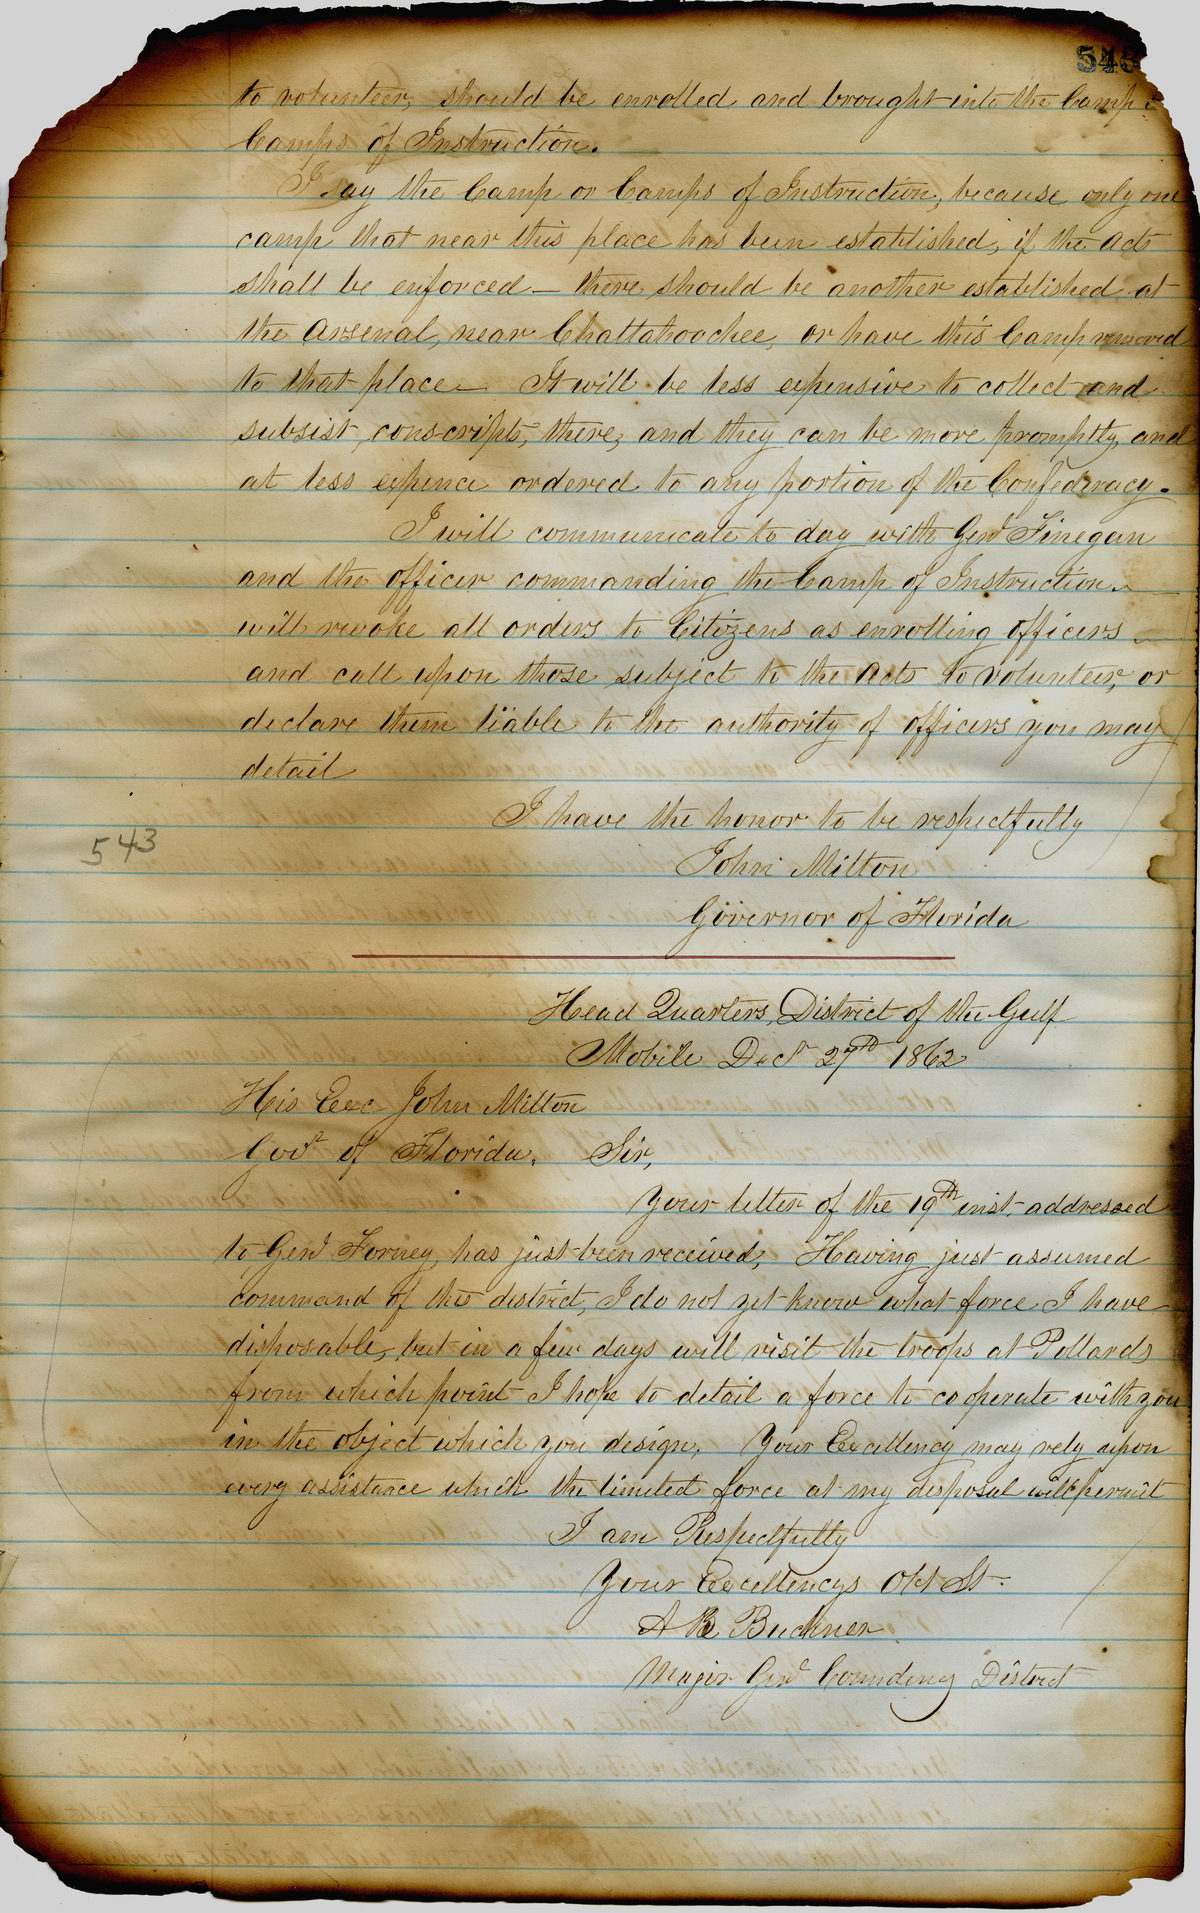 to volunteer, should be enrolled and brought into the Camp or
Camps of Instruction.
I say the Camp or Camps of Instruction, because only one
camp that near this place has been established, if the Acts
shall be enforced — there should be another established at
the Arsenal, near Chattahoochee, or have this Camp removed
to that place — It will be less expensive to collect and
subsist, conscripts, there, and they can be more promptly, and
at less expence ordered to any portion of the Confederacy.
I will communicate to day with Genl Finegan
and the officer commanding the Camp of Instruction
will revoke all orders to Citizens as enrolling officers
and call upon those subject to the Acts to volunteer, or
declare them liable to the authority of officers you may
detail
I have the honor to be respectfully
543
John Milton
Governor of Florida
Head Quarters, District of the Gulf
Mobile Decr 27th 1862
His Exc John Milton
Govr of Florida. Sir,
Your letter of the 19th inst. addressed
to Genl Forney, has just been received, Having just assumed
command of the district, I do not yet know what force I have
disposable, but in a few days will visit the troops at Pollards
from which point I hope to detail a force to cooperate with you
in the object which you design. Your Excellency may rely upon
every assistance which the limited force at my disposal will permit
I am Respectfully
Your Excellencys Obt St.
Buckner
Major Genl Comndeng District